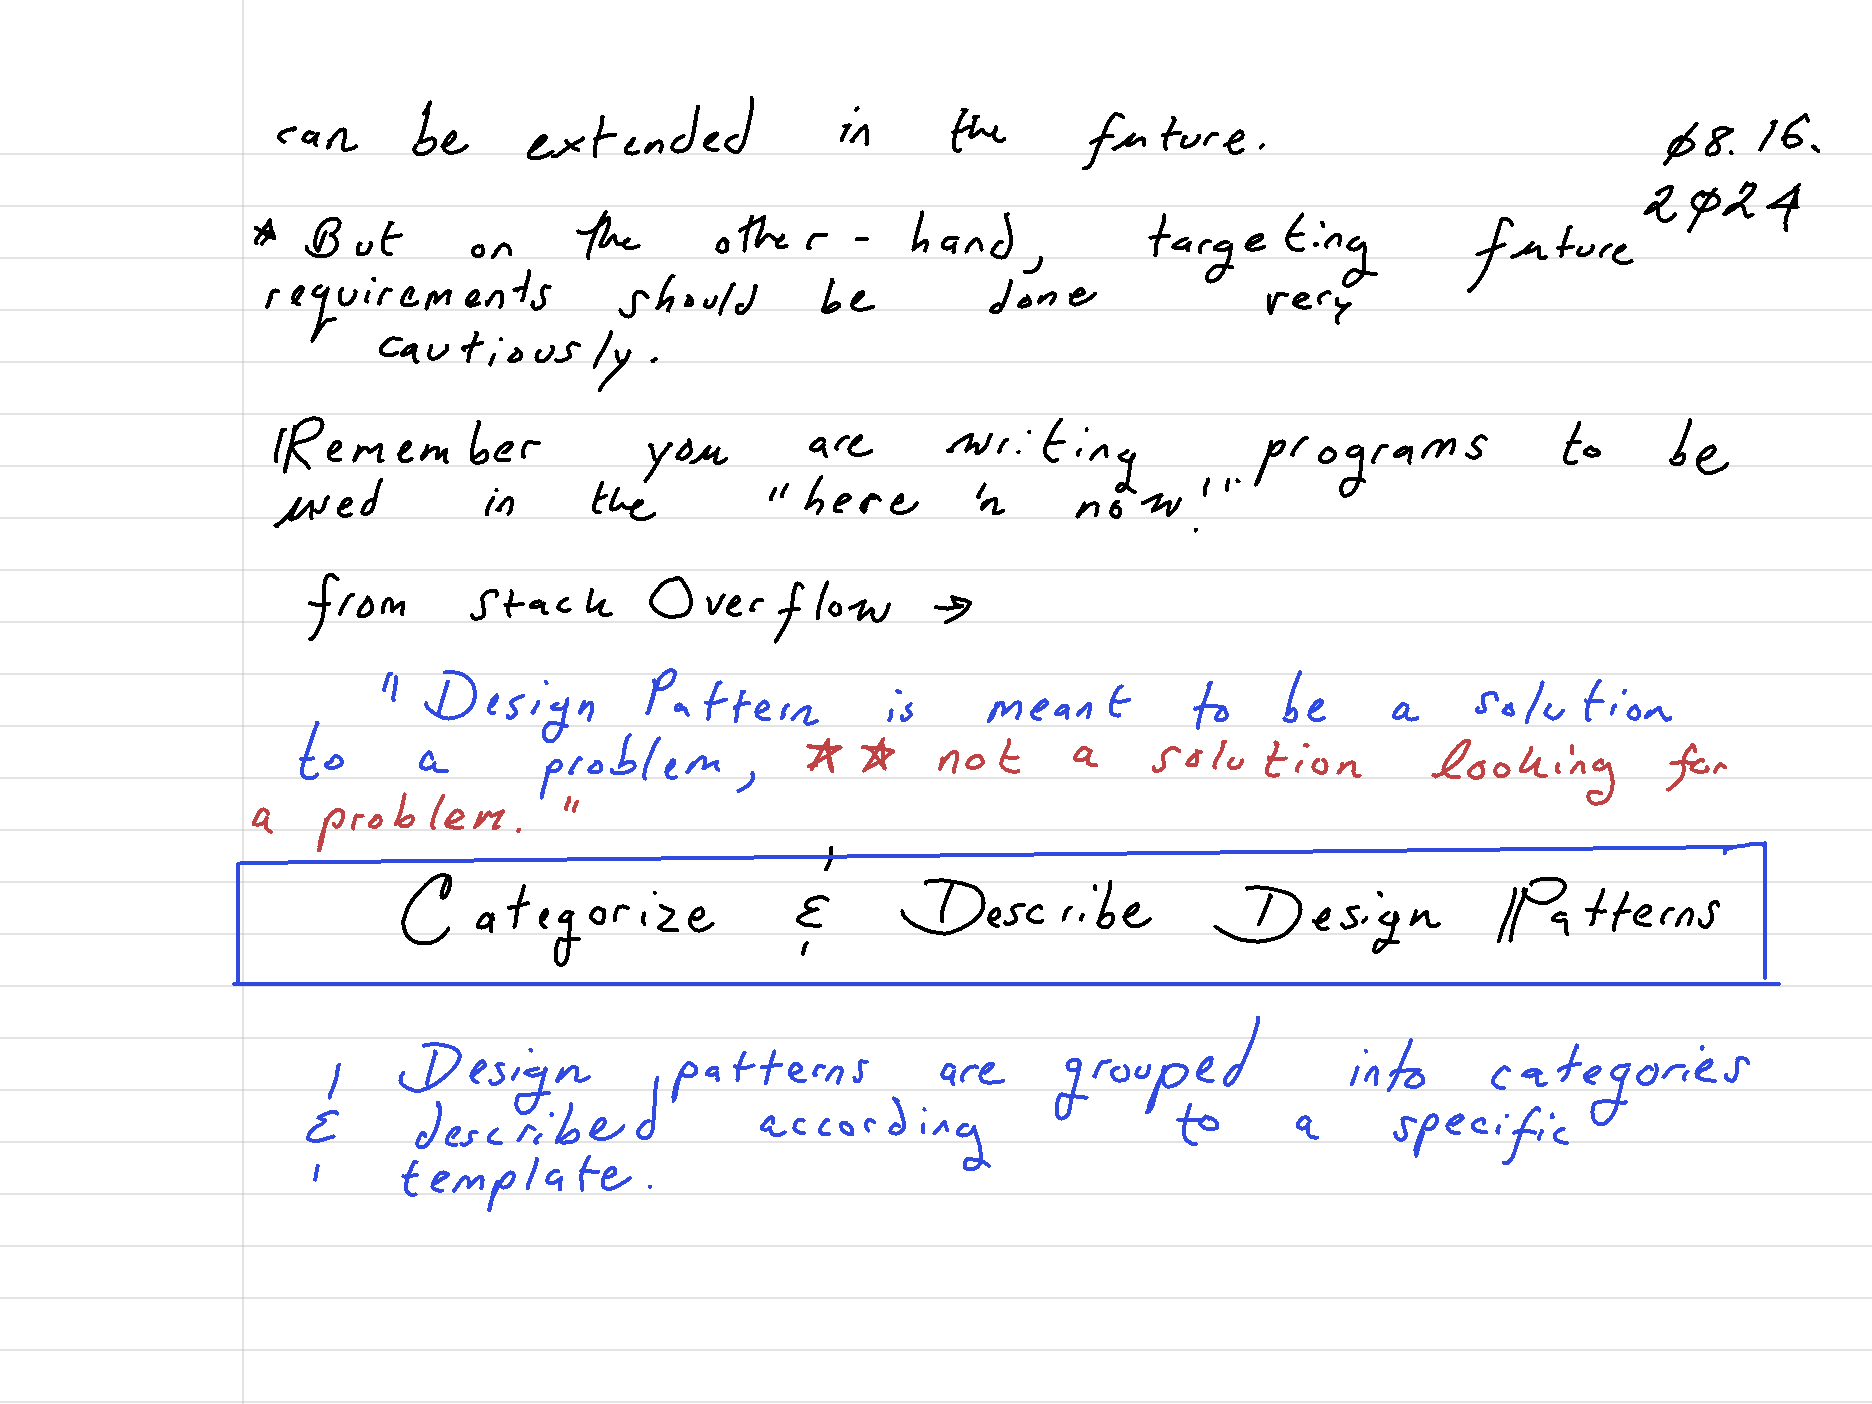 can be extended in the future.
Ø8.16.
2Ø24
* But on the other-hand, targeting future
requirements should be done very
cautiously.
Remember you are writing programs to be
used in the "here 'n now!".
from stack Overflow →
"Design Pattern is meant to be a solution
to a problem, ** not a solution looking for
a problem."
Categorize & Describe Design Patterns
Design patterns are grouped into categories
& described according to a specific
template.